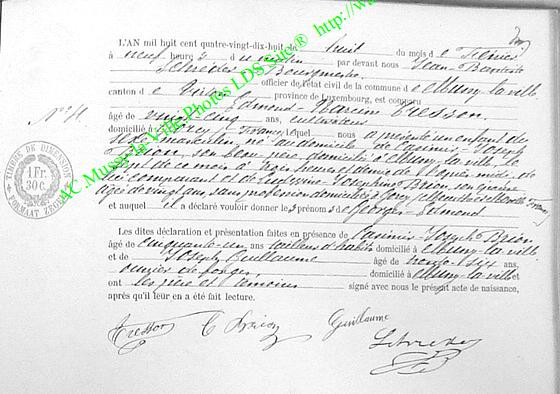 L'AN mil huit cent quatre-vingt-dix-huit le huit du mois de Février
à neuf heures du matin par devant nous Jean-Baptiste
Bourgmestre
officier de l'état civil de la commune de Mussy-la-ville
canton de Virton province de Luxembourg, est comparu
Edmond
âgé de vingt cinq ans, cultivateur
domicilié à (France) lequel nous a présenté un enfant du
N° 4.
sexe masculin, né au domicile de Casimir-Joseph
Brion, son beau père domicilié à Mussy-la-ville, le
de ce mois à trois heures et demie de l'après-midi, de
lui comparant et de Joséphine Brion, son épouse
âgée de vingt ans, sans profession domiciliée à
et auquel il a déclaré vouloir donner les prénoms de Georges-Edmond
Les dites déclaration et présentation faites en présence de Casimir-Joseph Brion
âgé de cinquante-un ans, tailleur d'habits domicilié à Mussy-la-ville
et de Joseph Guillaume âgé de trente-six ans.
ouvrier de forges, domicilié à Mussy-la-ville et
ont les père et témoins signé avec nous le présent acte de naissance,
après qu'il leur en a été fait lecture.
C Brion
Guillaume
TIMBRE DE DIMENSION
1 Fr.
30 C.
FORMAAT ZEGEL
AC.Mussy-la-Ville Photos LDS Suc® http://w